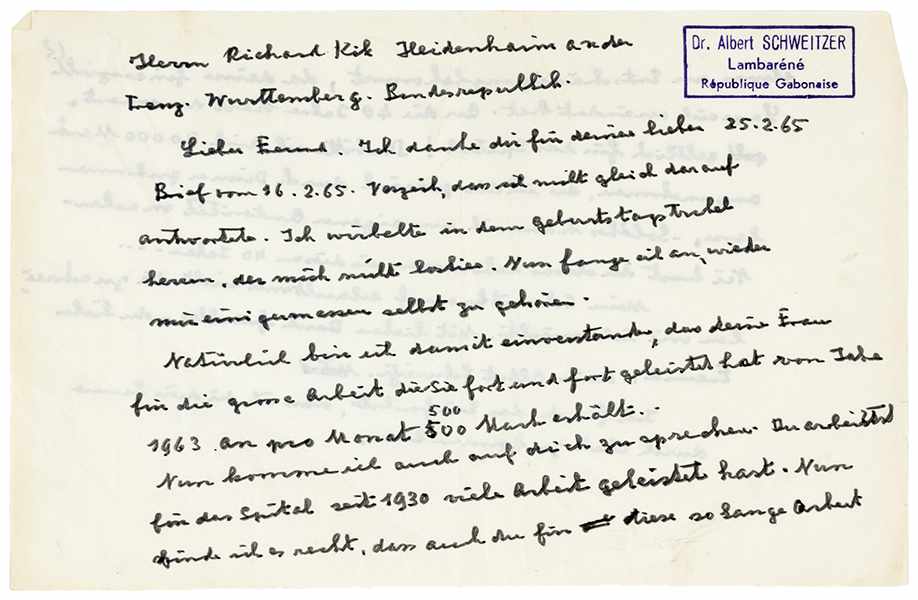 Dr. Albert SCHWEITZER
Lambaréné
République Gabonaise
Herrn Richard Kik Heidenheim an der
Brenz. Wurttemberg. Bundesrepublik.
25.2.65
Lieber Freund. Ich danke dir für deinen lieben
Brief vom 16.2.65. Verzeih, dass ich nicht gleich darauf
antwortete. Ich wirbelte in dem Geburtstagstrubel
herum, der mich nicht losliess. Nun fange ich an, wieder
mir einigermassen selbst zu gehören.
Natürlich bin ich damit einverstanden, das deine Frau
für die grosse Arbeit die Sie fort und fort geleistet hat von Jahr
1963 an pro Monat 500 Mark erhält.
500
Nun komme ich auch auf dich zu sprechen. Du
für das Spital seit 1930 viele Arbeit geleistet hast. Nun
finde ich es recht, dass auch du für diese so lange Arbeit